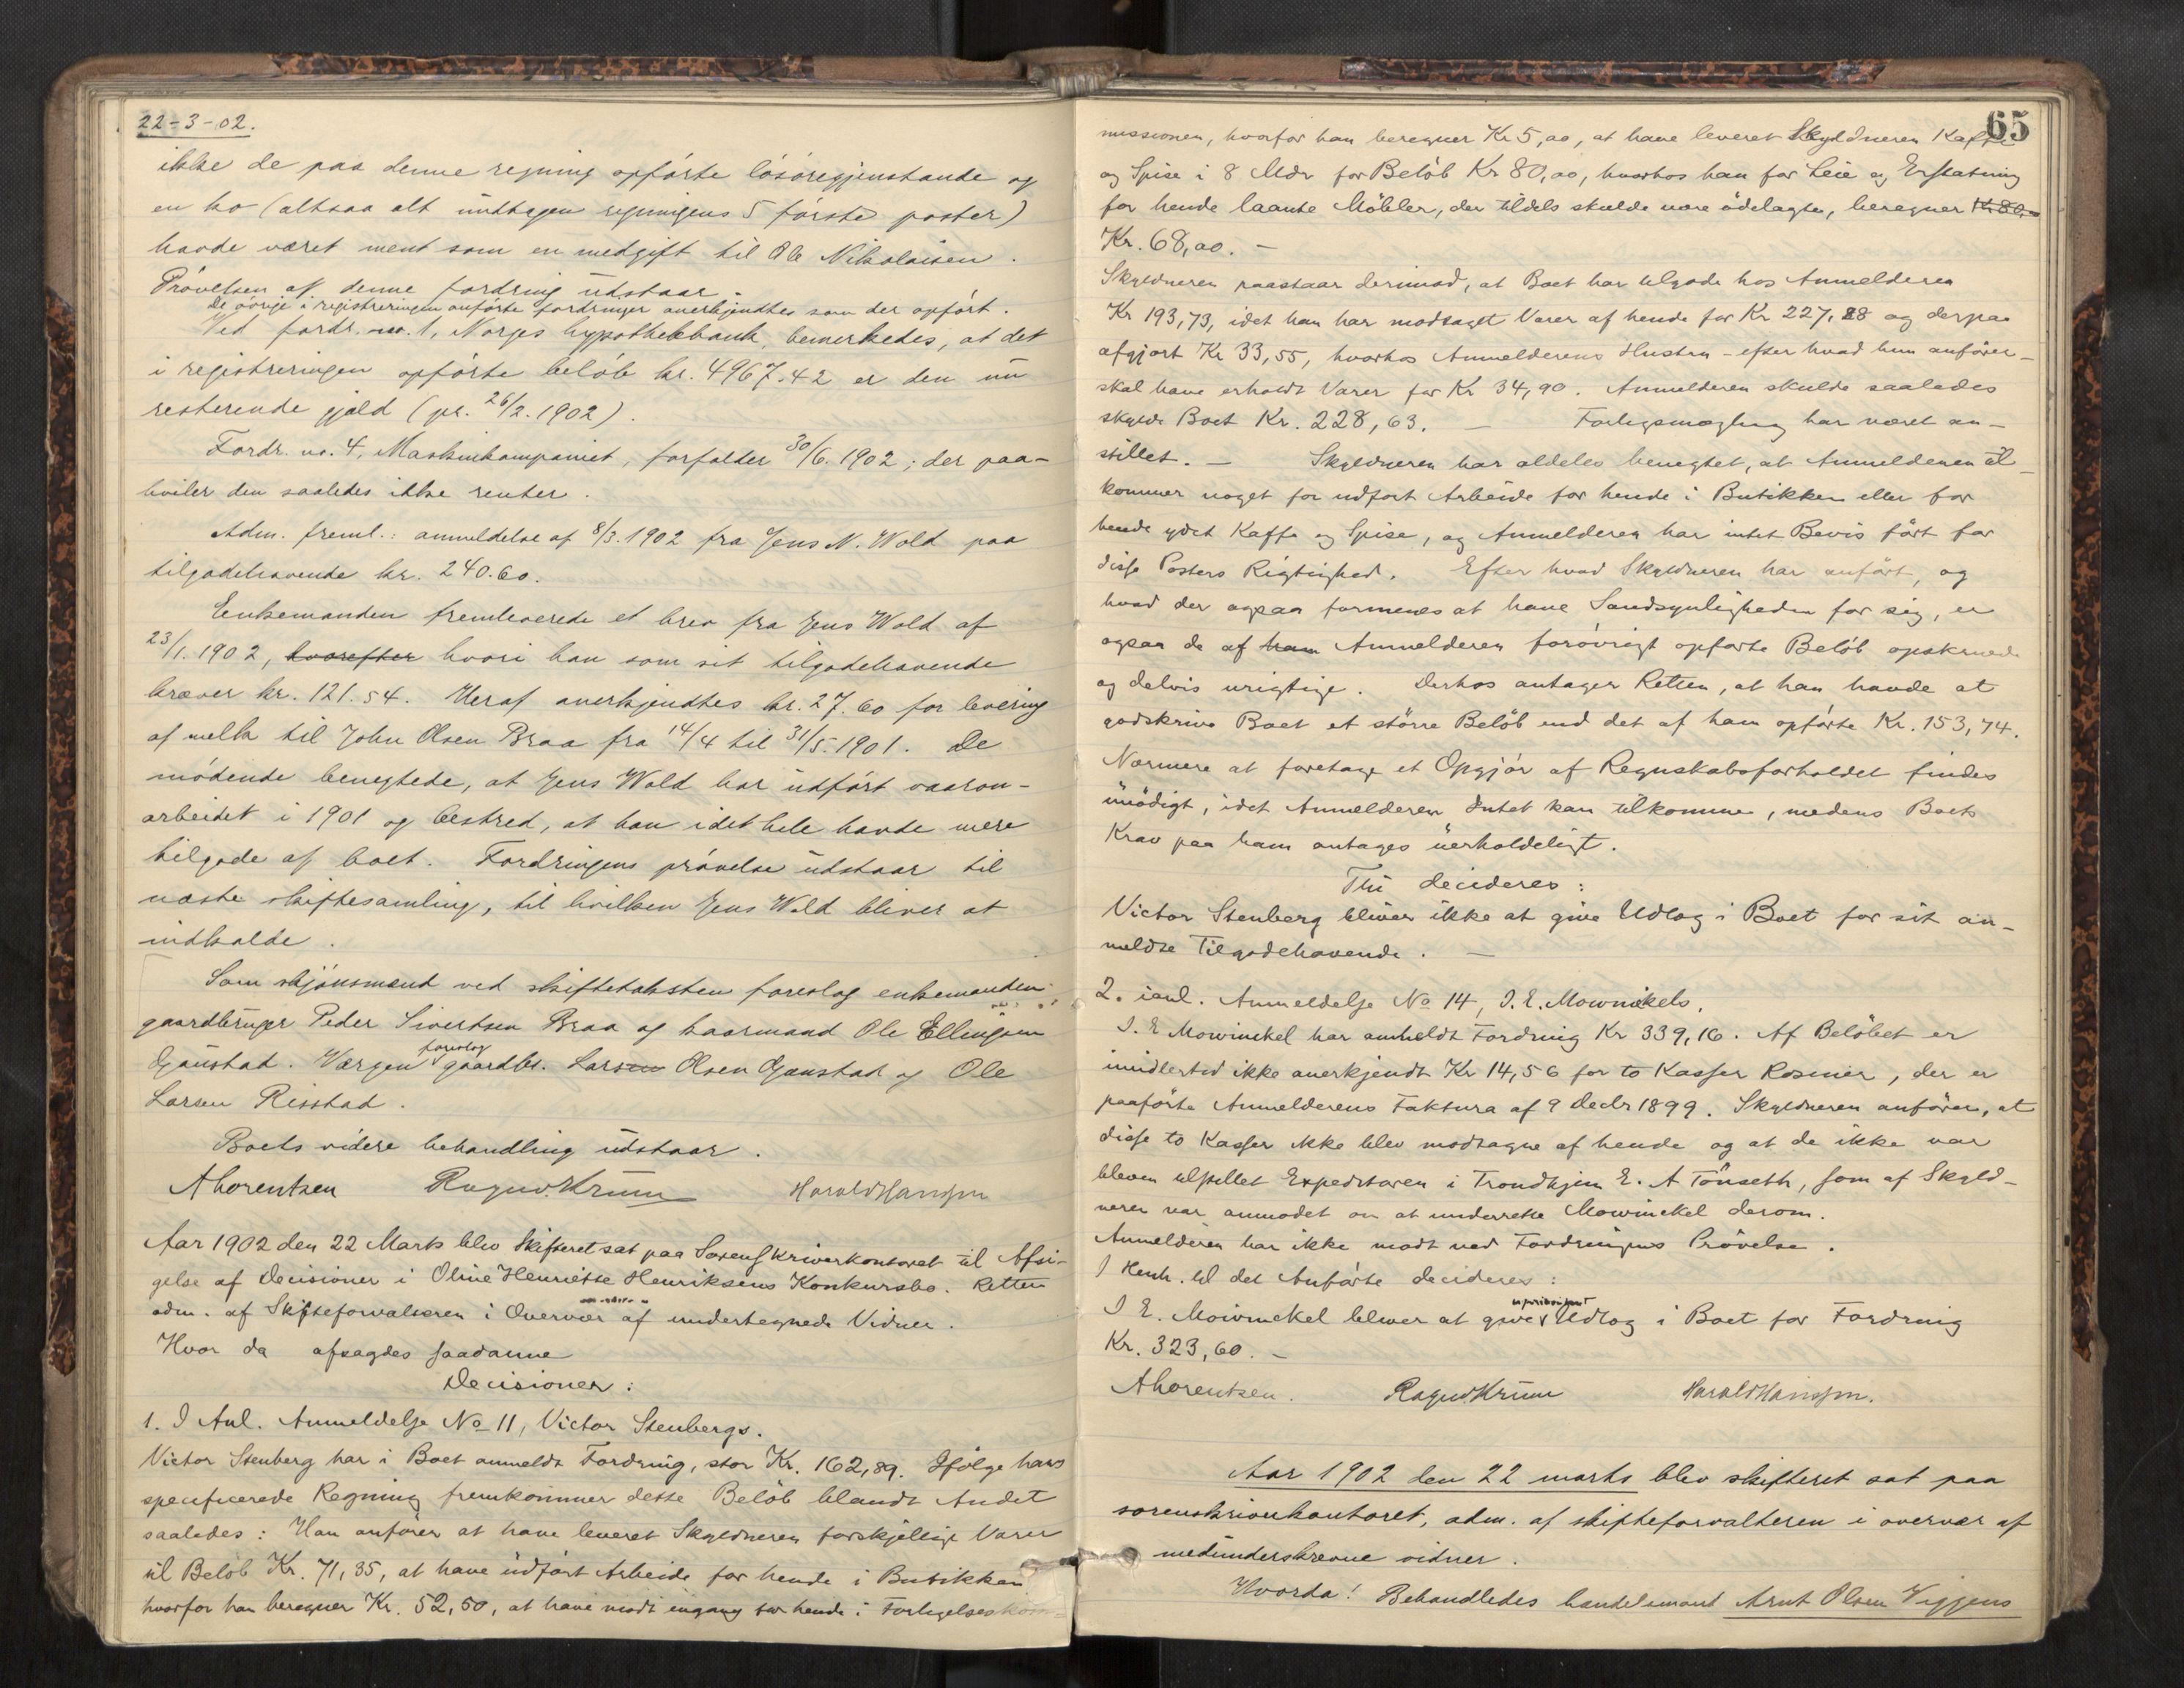 22-3-02.
ikke de paa denne regning opførte løsøregjenstande og
en ko (altsaa alt undtagen regningens 5 første poster)
havde været ment som en medgift til Ole Nikolaisen.
Prøvelsen af denne fordring udstaar.
De øvrige i registreringen anførte fordringer anerkjendtes som der opført.
Ved fordr. no. 1, Norges hypothekbank, bemerkedes, at det
i registreringen opførte beløb kr. 4967.42 er den nu
resterende gjæld (pr. 26/2. 1902).
Fordr. no. 4, Maskinkompaniet, forfalder 30/6. 1902; der paa-
hviler den saaledes ikke renter.
Adm. freml.: anmeldelse af 8/3. 1902 fra Jens N. Wold paa
tilgodehavende kr. 240.60.
Enkemanden fremleverede et brev fra Jens Wold af
23/1. 1902, hvorefter hvori han som sit tilgodehavende
kræver kr. 121.54. Heraf anerkjendtes kr. 27.60 for levering
af melk til John Olsen Braa fra 14/4 til 31/5. 1901. De
mødende benegtede, at Jens Wold har udført vaaron-
arbeidet i 1901 og bestred, at han i det hele havde mere
tilgode af boet. Fordringens prøvelse udstaar til
næste skiftesamling, til hvilken Jens Wold bliver at
indkalde.
Som skjønsmænd ved skiftetaksten foreslog enkemanden
gaardbruger Peder Sivertsen Braa og haarmand Ole Ellingsen
Gjaustad. Værgen foreslog gaardbr. Lars Olsen Gjaustad og Ole
Larsen Risstad.
Boets videre behandling udstaar.
A Lorentzen Ragnv. Krum Harald Hanssen
Aar 1902 den 22 Marts blev Skifteret sat paa Sorenskriverkontoret til Afsi-
gelse af Decisioner i Oline Henriette Henriksens Konkursbo. Retten
adm. af Skifteforvalteren i Overvær af undertegnede Vidner.
Hvor da afsagdes saadanne
Decisioner:
1. I Anl. Anmeldelse No 11, Victor Stenbergs.
Victor Stenberg har i Boet anmeldt Fordring, stor Kr. 162,89. Ifølge hans
specificerede Regning fremkommer dette Beløb blandt Andet
saaledes: Han anfører at have leveret Skyldneren forskjellige Varer
til Beløb Kr. 71,35, at have udført Arbeide for hende i Butikken
hvorfor han beregner Kr. 52,50, at have mødt engang for hende i Forligelseskom-
65
missionen, hvorfor han beregner Kr 5,00, at have leveret Skyldneren Kaffe
og Spise i 8 Mdr for Beløb Kr 80,00, hvorhos han for Leie og Erstatning
for hende laante Møbler, der tildels skulde være ødelagte, beregner Kr 80,00
Kr. 68,00. —
Skyldneren paastaar derimod, at Boet har tilgode hos Anmelderen
Kr 193,73, idet han har modtaget Varer af hende for Kr 227,28 og derpaa
afgjort Kr 33,55, hvorhos Anmelderens Hustru - efter hvad hun anfører -
skal have erholdt Varer for Kr 34,90. Anmelderen skulde saaledes
skylde Boet Kr. 228,63. — Forligsmægling har været an-
stillet. — Skyldneren har aldeles benegtet, at Anmelderen til-
kommer noget for udført Arbeide for hende i Butikken eller for
hende ydet Kaffe og Spise, og Anmelderen har intet Bevis ført for
disse Posters Rigtighed. Efter hvad Skyldneren har anført, og
hvad der ogsaa formenes at have Sandsynligheden for sig, er
ogsaa de af ham Anmelderen forøvrigt opførte Beløb opskruede
og delvis urigtige. Derhos antager Retten, at han havde at
godskrive Boet et større Beløb end det af ham opførte Kr. 153,74.
Nærmere at foretage et Opgjør af Regnskabsforholdet findes
unødigt, idet Anmelderen Intet kan tilkomme, medens Boets
Krav paa ham antages uerholdeligt.
Thi decideres:
Victor Stenberg bliver ikke at give Udlæg i Boet for sit an-
meldte Tilgodehavende. —
2. i anl. Anmeldelse No 14, I. E. Mowinckels.
I. E Mowinckel har anmeldt Fordring Kr 339,16. Af Beløbet er
imidlertid ikke anerkjendt Kr 14,56 for to Kasser Rosiner, der er
paaførte Anmelderens Faktura af 9 Decbr 1899. Skyldneren anfører, at
disse to Kasser ikke blev modtagne af hende og at de ikke var
bleven tilstillet Expeditøren i Trondhjem E. A Tønseth, som af Skyld-
neren var anmodet om at underrette Mowinckel derom.
Anmelderen har ikke mødt ved Fordringens Prøvelse.
I Henh. til det Anførte decideres:
I E. Mowinckel bliver at give uprioritert Udlæg i Boet for Fordring
Kr. 323,60. —
A Lorentzen. Ragnv. Krum Harald Hanssen.
Aar 1902 den 22 marts blev skifteret sat paa
sorenskriverkontoret, adm. af skifteforvalteren i overvær af
medunderskrevne vidner.
Hvorda! Behandledes handelsmand Arnt Olsen Viggens